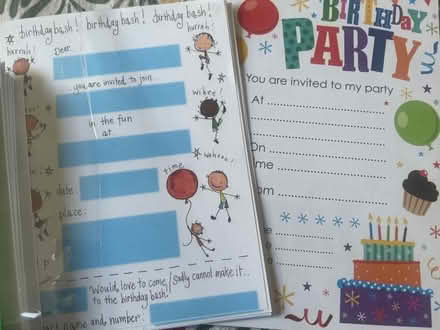 birthday bash! birthday bash! birthday bash!
hurrah!
hurrah!
Dear
you are invited to join
whee!
in the fun
at
wahooo!
time
date:
place:
Would, love to come, / Sadly cannot make it..
to the birthday bash!
name and, number:
BIRTHDAY
PARTY
You are invited to my party
At
On